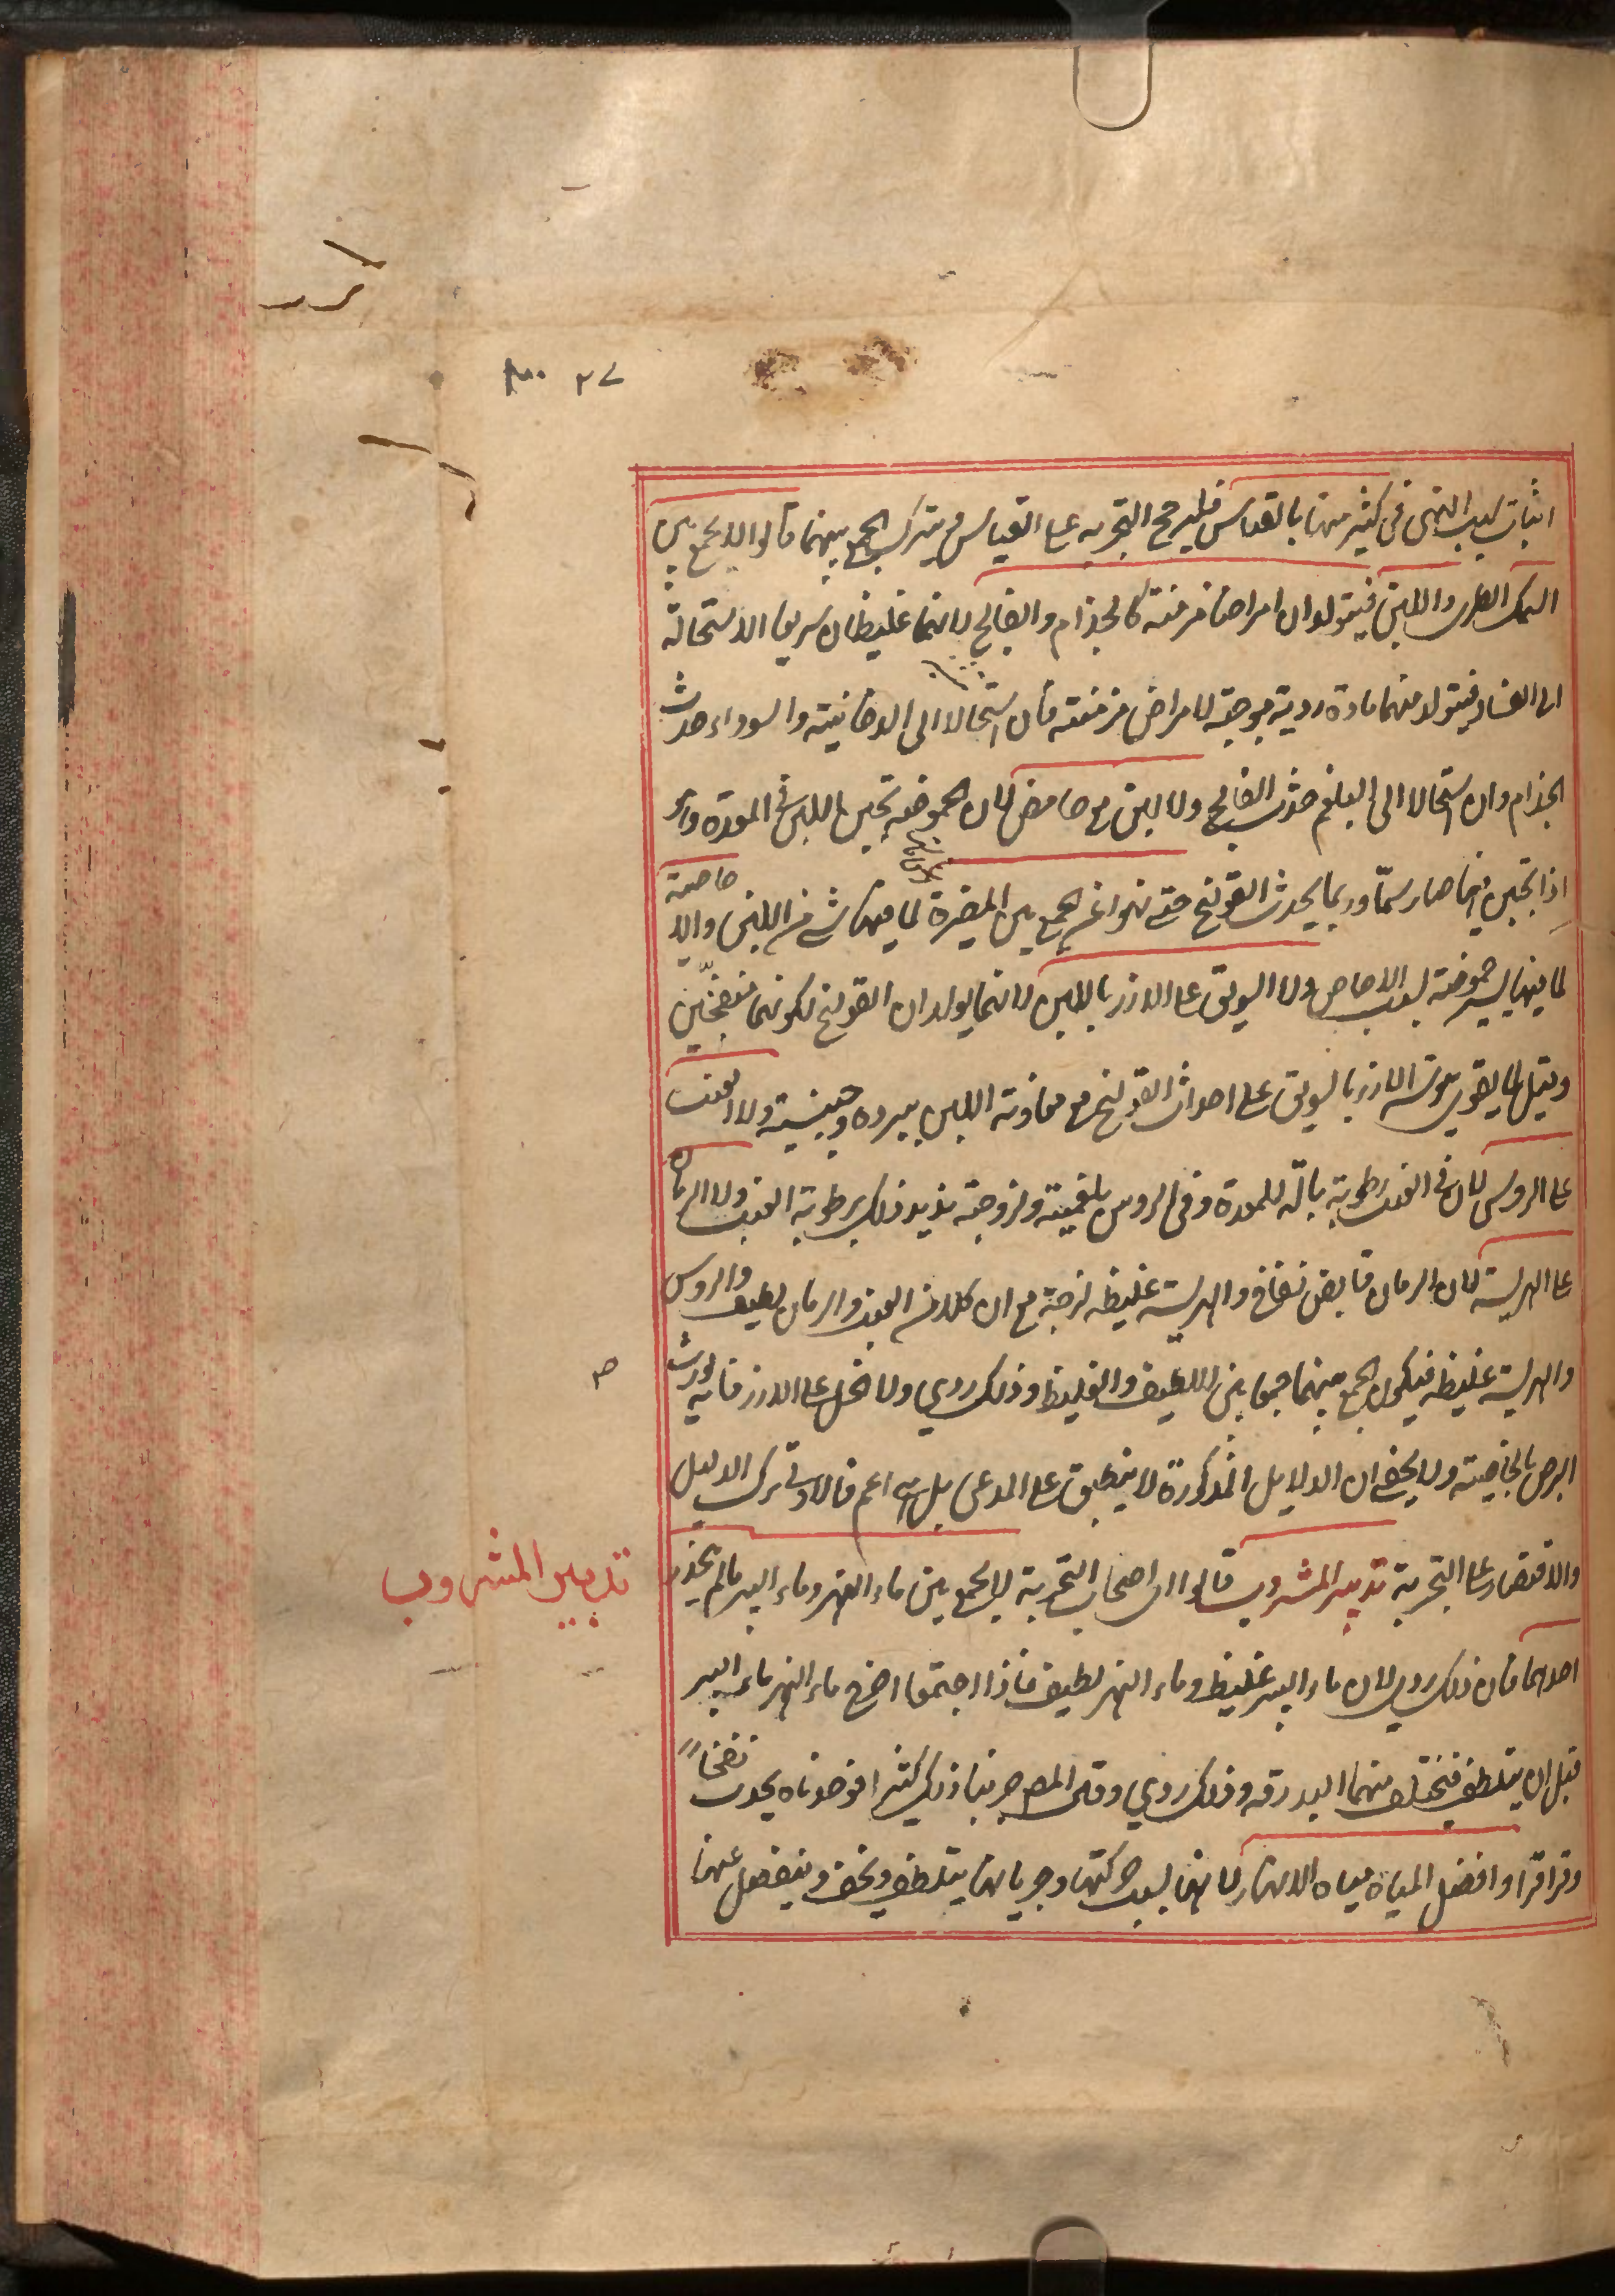 ٢٧
اثبات سبب النهي في كثير منها بالقياس فليرجح التجربه على القياس و يترك الجمع بينهما قالوا لا يجمع بين
السمك الطري واللبن فيتولدان امراضا مزمنة كالجذام والفالج لانهما غليظان سريعا الاستحالة
الى الفساد فيتولد منهما مادة ردية موجبة لامراض مزمنة فان استحالا الى الدخانية والسوداء حدث
الجذام وان استحالا الى البلغم حدث الفالج ولا لبن مع حامض لان الحموضه تجبن اللبن في المعدة
اذا تجبن فيها صار سمّا وربما يحدث القولنج حتى نهوا عن الجمع بين المضيرة لما فيها شئ من اللبن والا جاصية
لما فيها يسير حموضة بسبب الاجاص ولا السويق على الارز باللبن لانهما يولدان القولنج لكونهما منفخّين
وقيل لما يقوي يبوسة الارز بالسويق على احداث القولنج مع معاونة اللبن ببرده وجبنيته ولا العنب
على الروس لان في العنب رطوبة بالّه للمعدة وفي الروس بلغمية ولزوجة يزيد ذلك برطوبة العنب ولا الرمان
على الهريسة لان الرمان قابض نفاخ والهريسة غليظه لزجة مع ان كلا من العنب والرمان لطيف والروس
والهريسة غليظه فيكون الجمع بينهما جمعا بين اللطيف والغليظ وذلك ردي ولا الخل على الارز فانه يورث
البرص بالخاصية ولا يخفى ان الدلايل المذكورة لا ينطبق على المدعى بل هي اعم فالاولى ترك الدليل
والاقتصار على التجربة تدبير المشروب قالوا اى اصحاب التجربة لا يجمع بين ماء النهر وماء البير ما لم ينحدر
تدبير المشروب
احدهما فان ذلك ردي لان ماء البير غليظ وماء النهر لطيف فاذا اجتمعا اخرج ماء النهر ماء البير
قبل ان يتلطف فيختلف منهما البدرقه وذلك ردي وقال المص جربنا ذلك كثيرا فوجدناه يحدث نفخاً
وقراقرا وافضل المياه مياه الانهار لانها بسبب حركتها وجريانها يتلطف ويخف وينفصل عنها